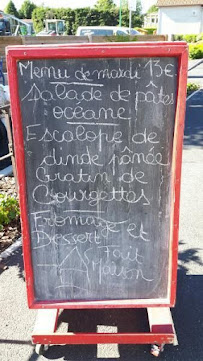 Menu de mardi 13€
Salade de pâtes
océane
Escalope de
dinde pânée
Gratin de
Courgettes
Fromage et
Dessert
Fait
Maison